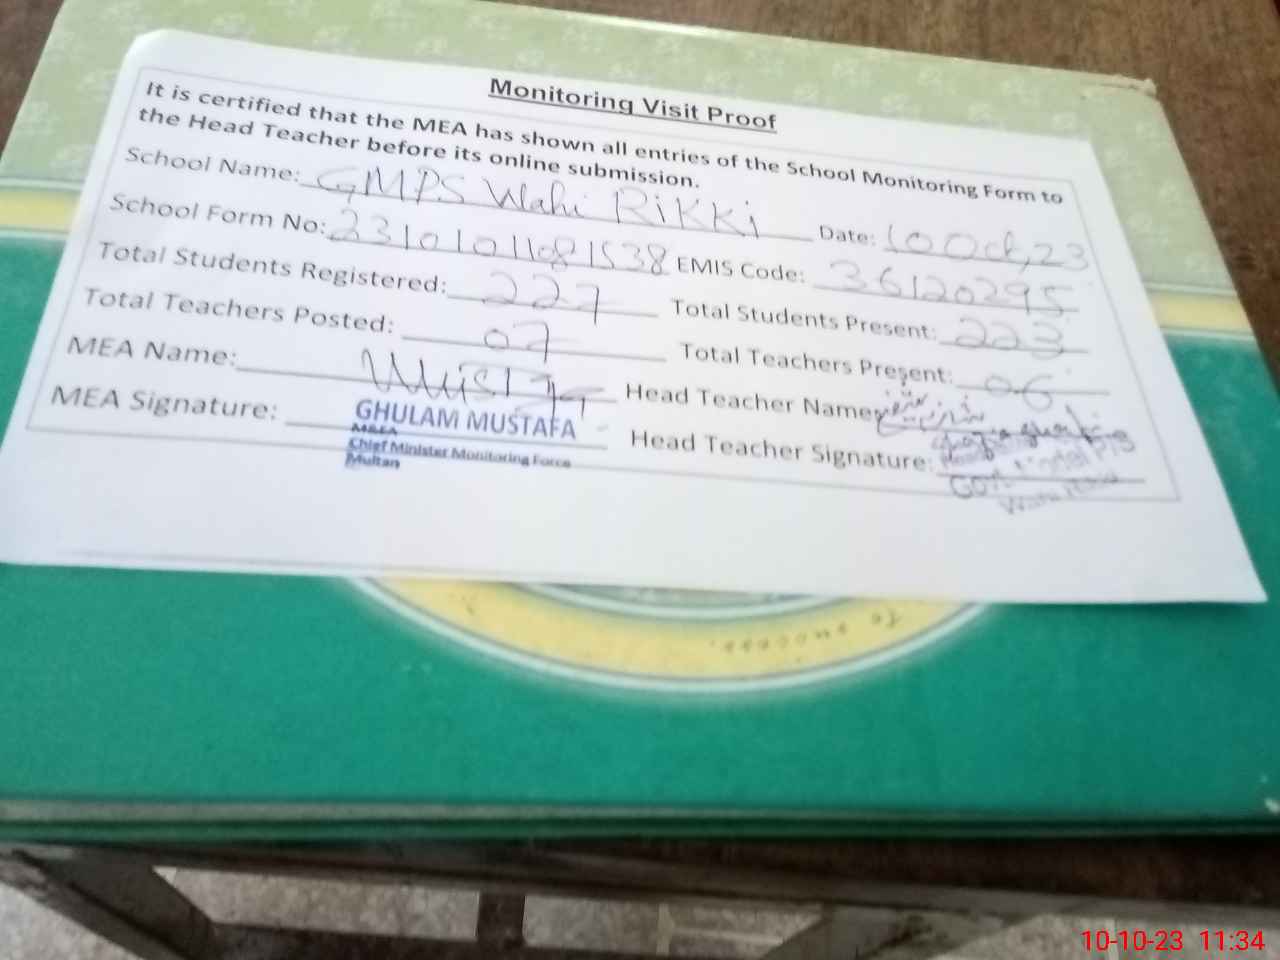 Monitoring Visit Proof
It is certified that the MEA has shown all entries of the School Monitoring Form to
the Head Teacher before its online submission.
School Name: GMPS Wahi Rikki Date: 10 Oct, 23
School Form No: 23101011081538 EMIS Code: 36120295
Total Students Registered: 227 Total Students Present: 223
Total Teachers Posted: 07 Total Teachers Present: 06
MEA Name: Head Teacher Name:
MEA Signature: Head Teacher Signature:
GHULAM MUSTAFA
M&EA
Chief Minister Monitoring Force
Multan
Govt. Model P/S
Wahi
10-10-23 11:34